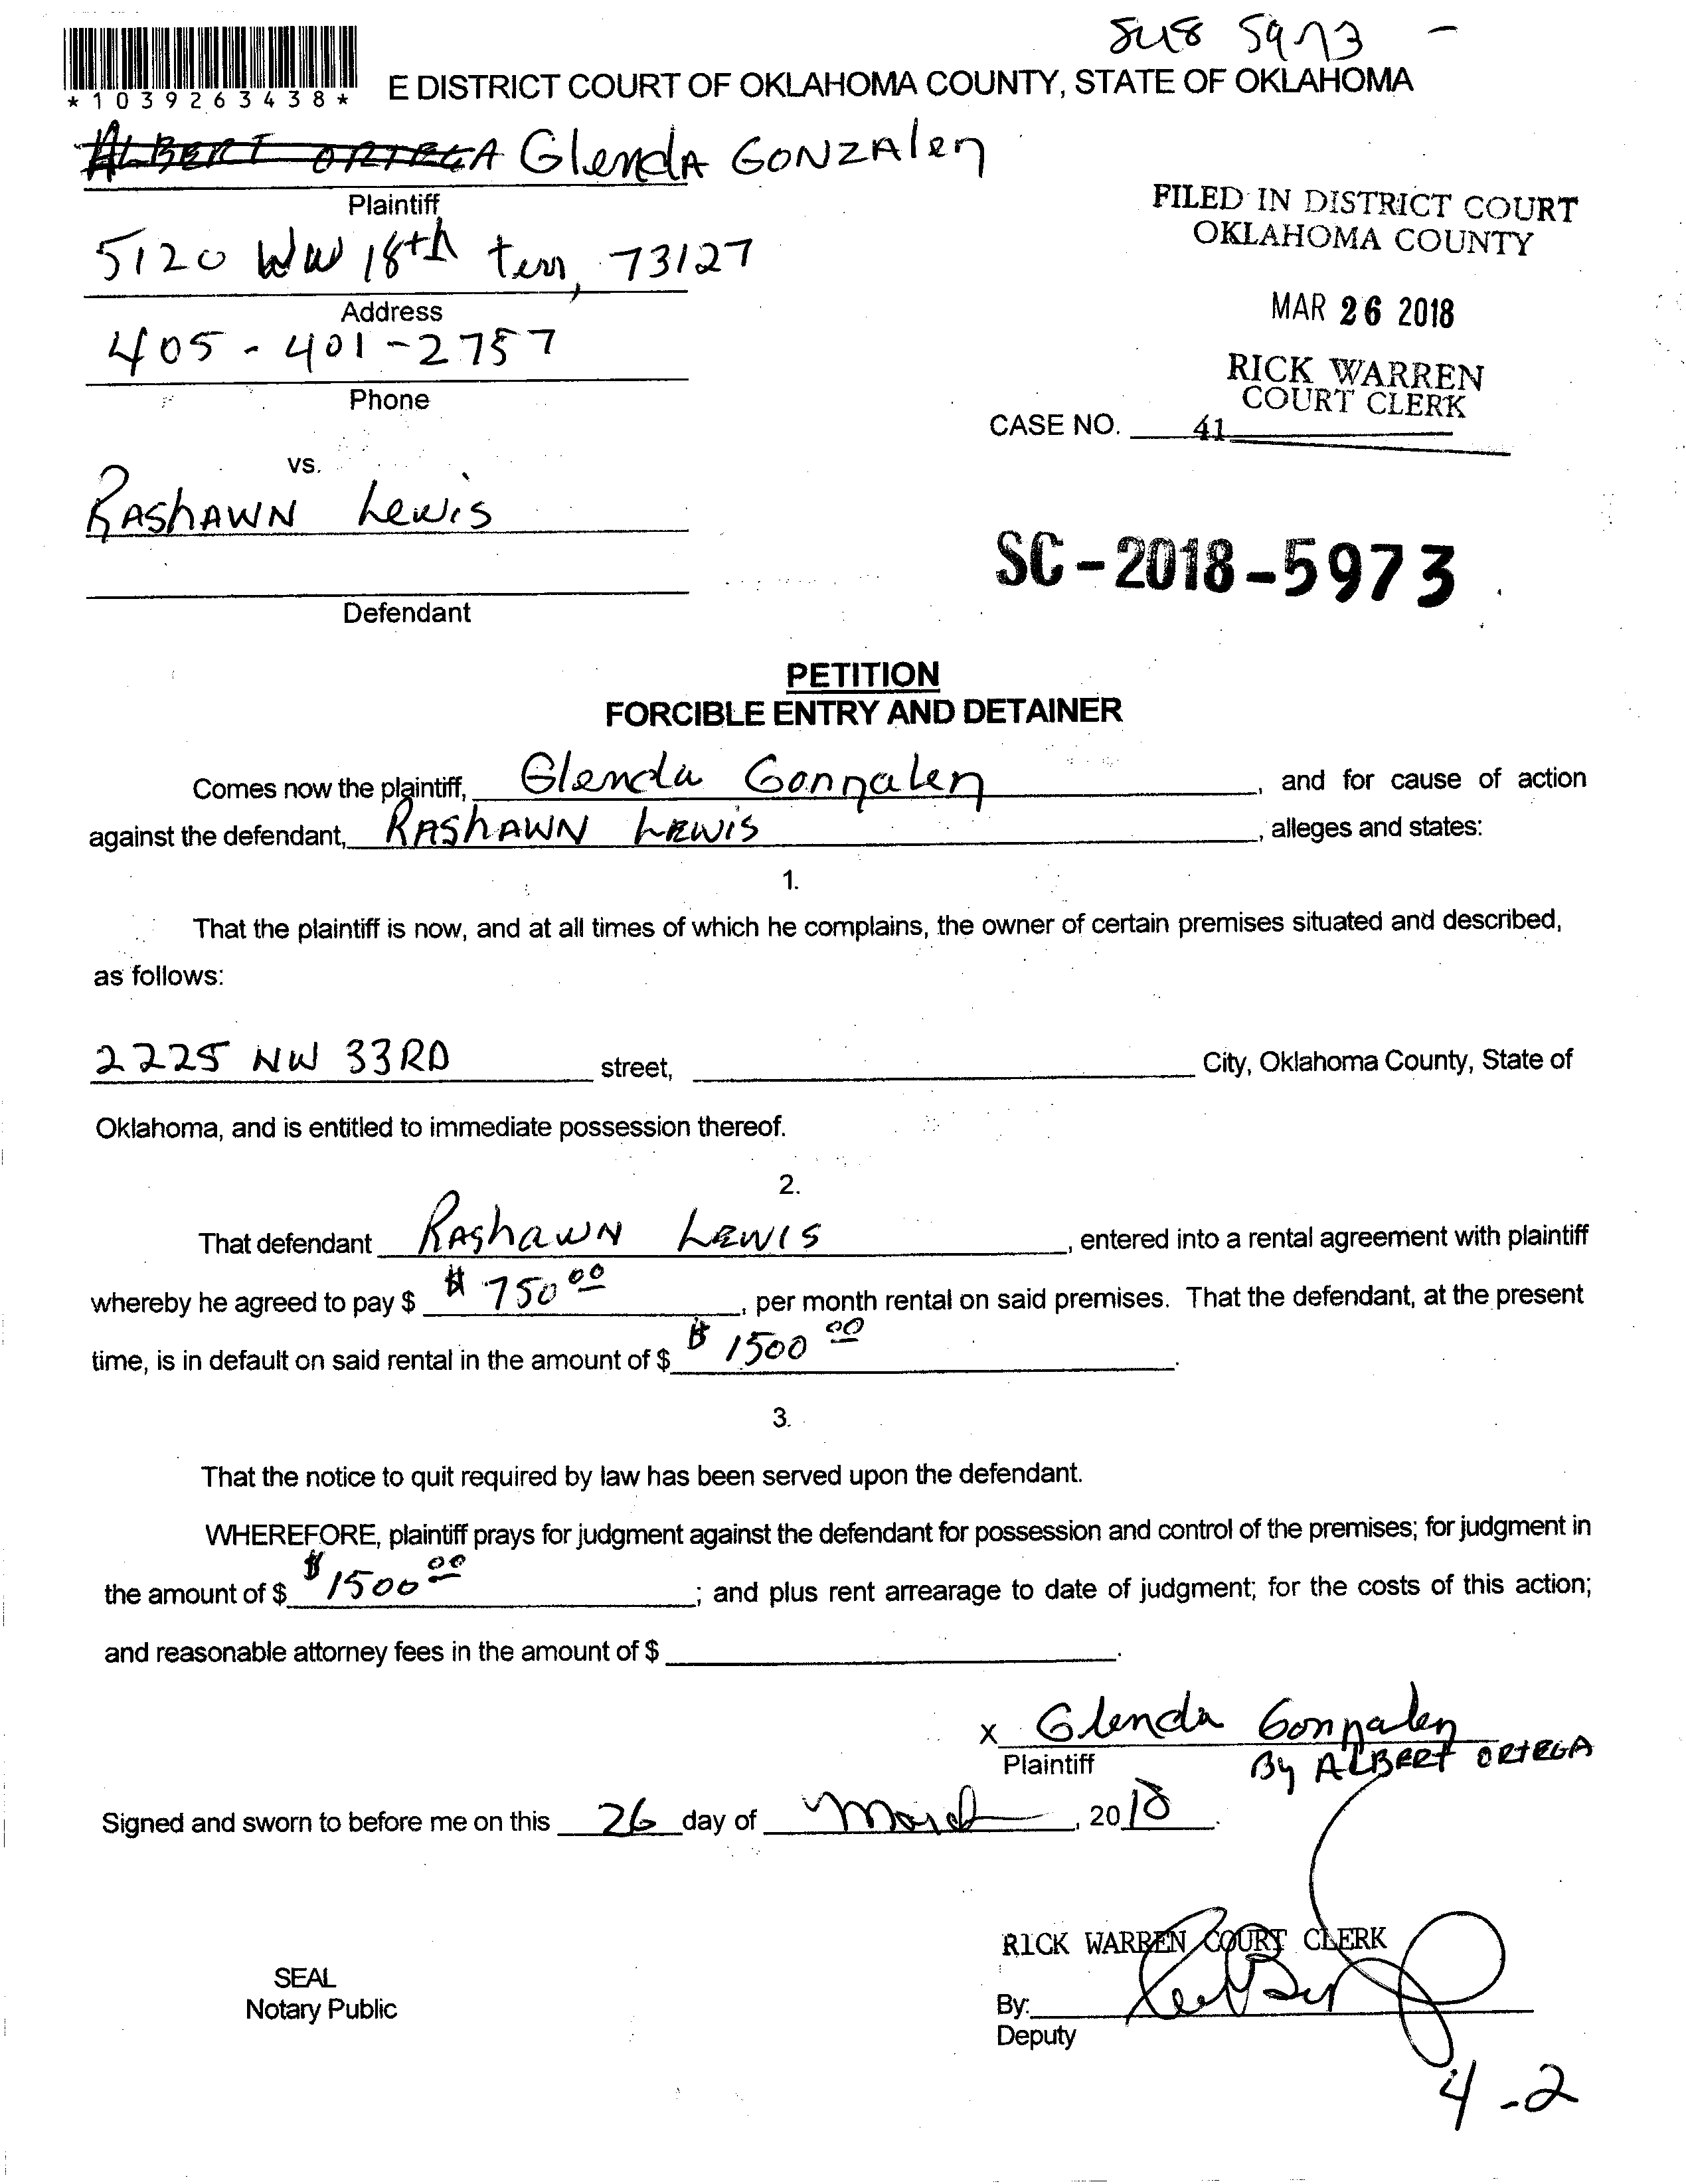 5973 -
*1039263438*
E DISTRICT COURT OF OKLAHOMA COUNTY, STATE OF OKLAHOMA
ALBERT ORTEGA GlendA GONZAlez
Plaintiff
5120 NW 18th terr, 73127
Address
405-401-2757
Phone
FILED IN DISTRICT COURT
OKLAHOMA COUNTY
MAR 26 2018
RICK WARREN
COURT CLERK
CASE NO. 41
vs.
RAShAWN Lewis
Defendant
SC-2018-5973
PETITION
FORCIBLE ENTRY AND DETAINER
Comes now the plaintiff, Glenda Gonzalez, and for cause of action
against the defendant, RAShAWN LEWiS, alleges and states:
1.
That the plaintiff is now, and at all times of which he complains, the owner of certain premises situated and described,
as follows:
2225 NW 33RD street, City, Oklahoma County, State of
Oklahoma, and is entitled to immediate possession thereof.
2.
That defendant RAShawN LEWIS, entered into a rental agreement with plaintiff
whereby he agreed to pay $ $750 00, per month rental on said premises. That the defendant, at the present
time, is in default on said rental in the amount of $ $1500 00.
3.
That the notice to quit required by law has been served upon the defendant.
WHEREFORE, plaintiff prays for judgment against the defendant for possession and control of the premises; for judgment in
the amount of $ $1500 00; and plus rent arrearage to date of judgment; for the costs of this action;
and reasonable attorney fees in the amount of $ .
x Glenda Gonzalez
Plaintiff By ALBERT ORTEGA
Signed and sworn to before me on this 26 day of March, 2018.
RICK WARREN COURT CLERK
SEAL
Notary Public
By:
Deputy
4-2